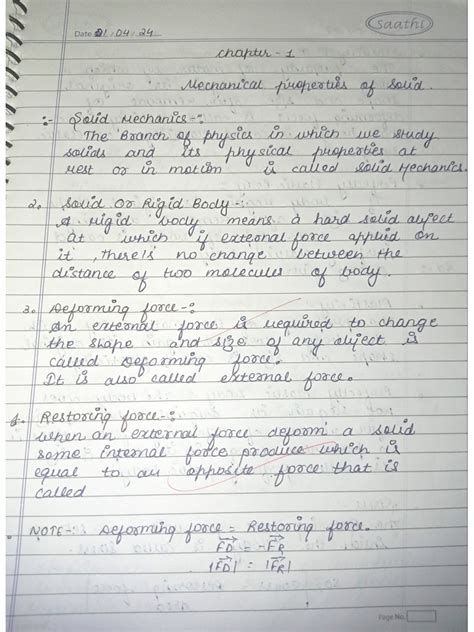 Saathi
Date 01.04.24
Chapter - 1
Mechanical properties of Solid.
:- Solid Mechanics -:
The Branch of physics in which we study
solids and its physical properties at
rest or in motion is called Solid Mechanics.
2. Solid Or Rigid Body -:
A rigid body means a hard solid object
at which if external force applied on
it, there is no change between the
distance of two molecules of body.
3. Deforming force -:
An external force is required to change
the shape and size of any object is
called Deforming force.
It is also called external force.
4. Restoring force -:
when an external force deform a solid
some internal force produce which is
equal to an opposite force that is
called
NOTE -: Deforming force = Restoring force.
FD = -FR
|FD| = |FR|
Page No.